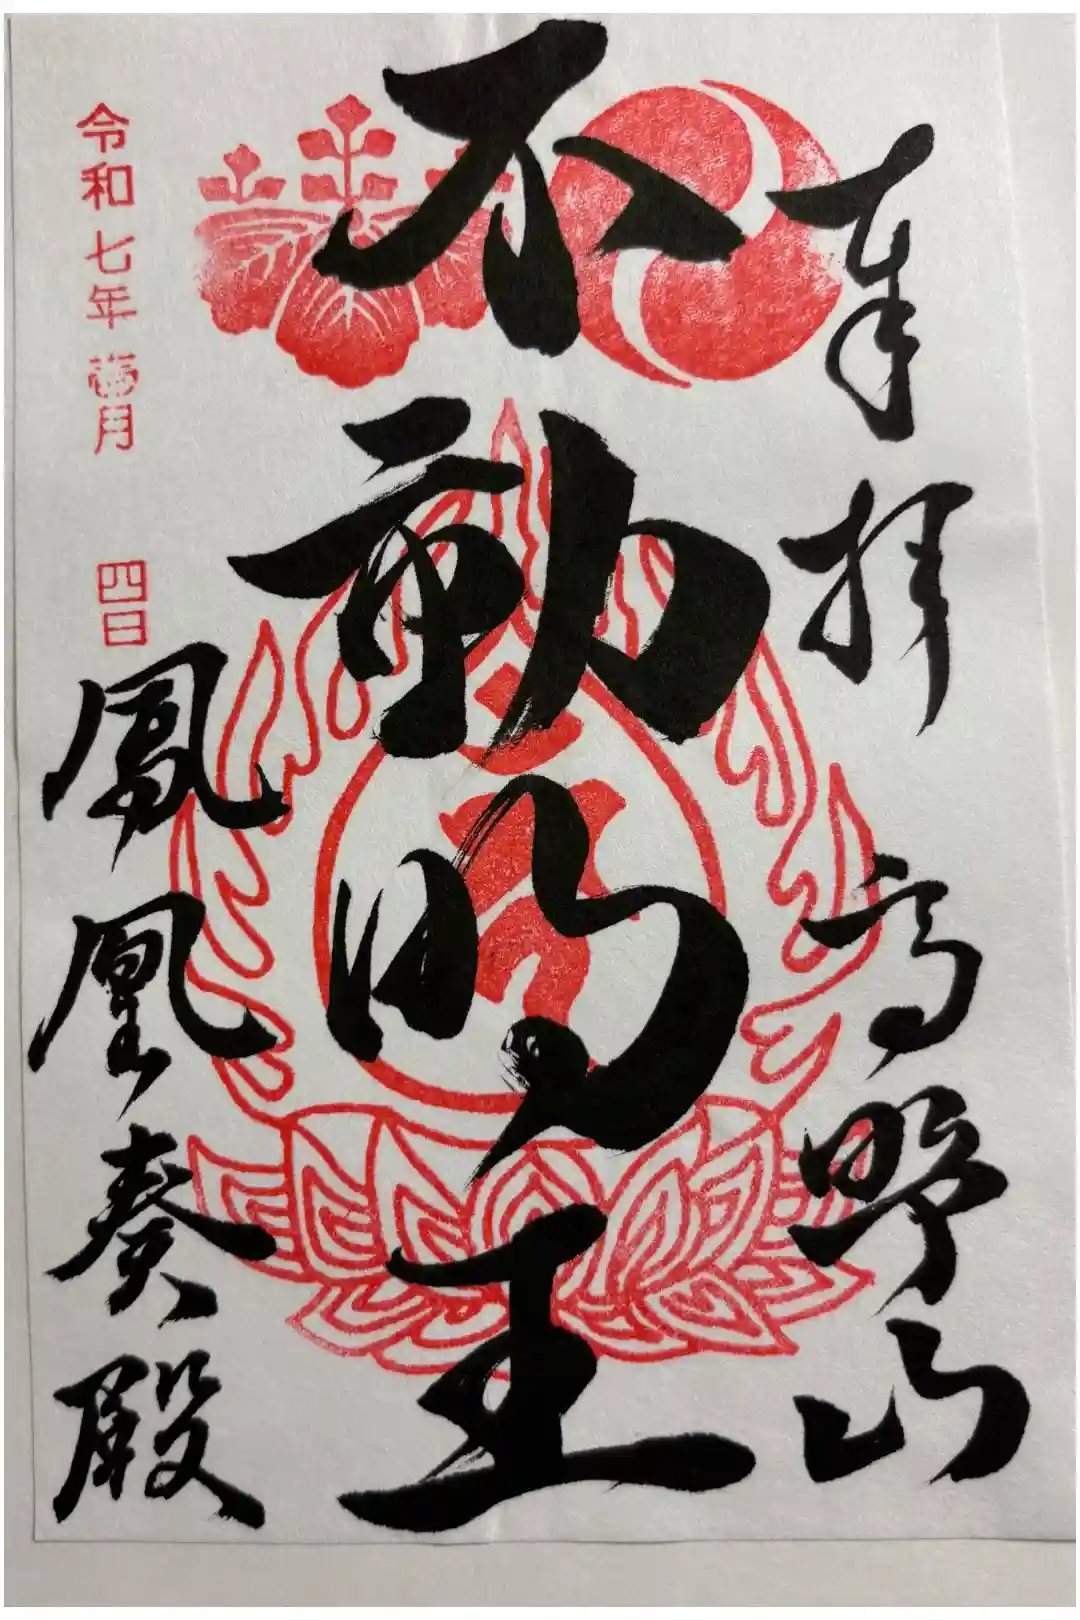 奉拝 高野山
不動明王
令和七年壱月 四日
鳳凰奏殿